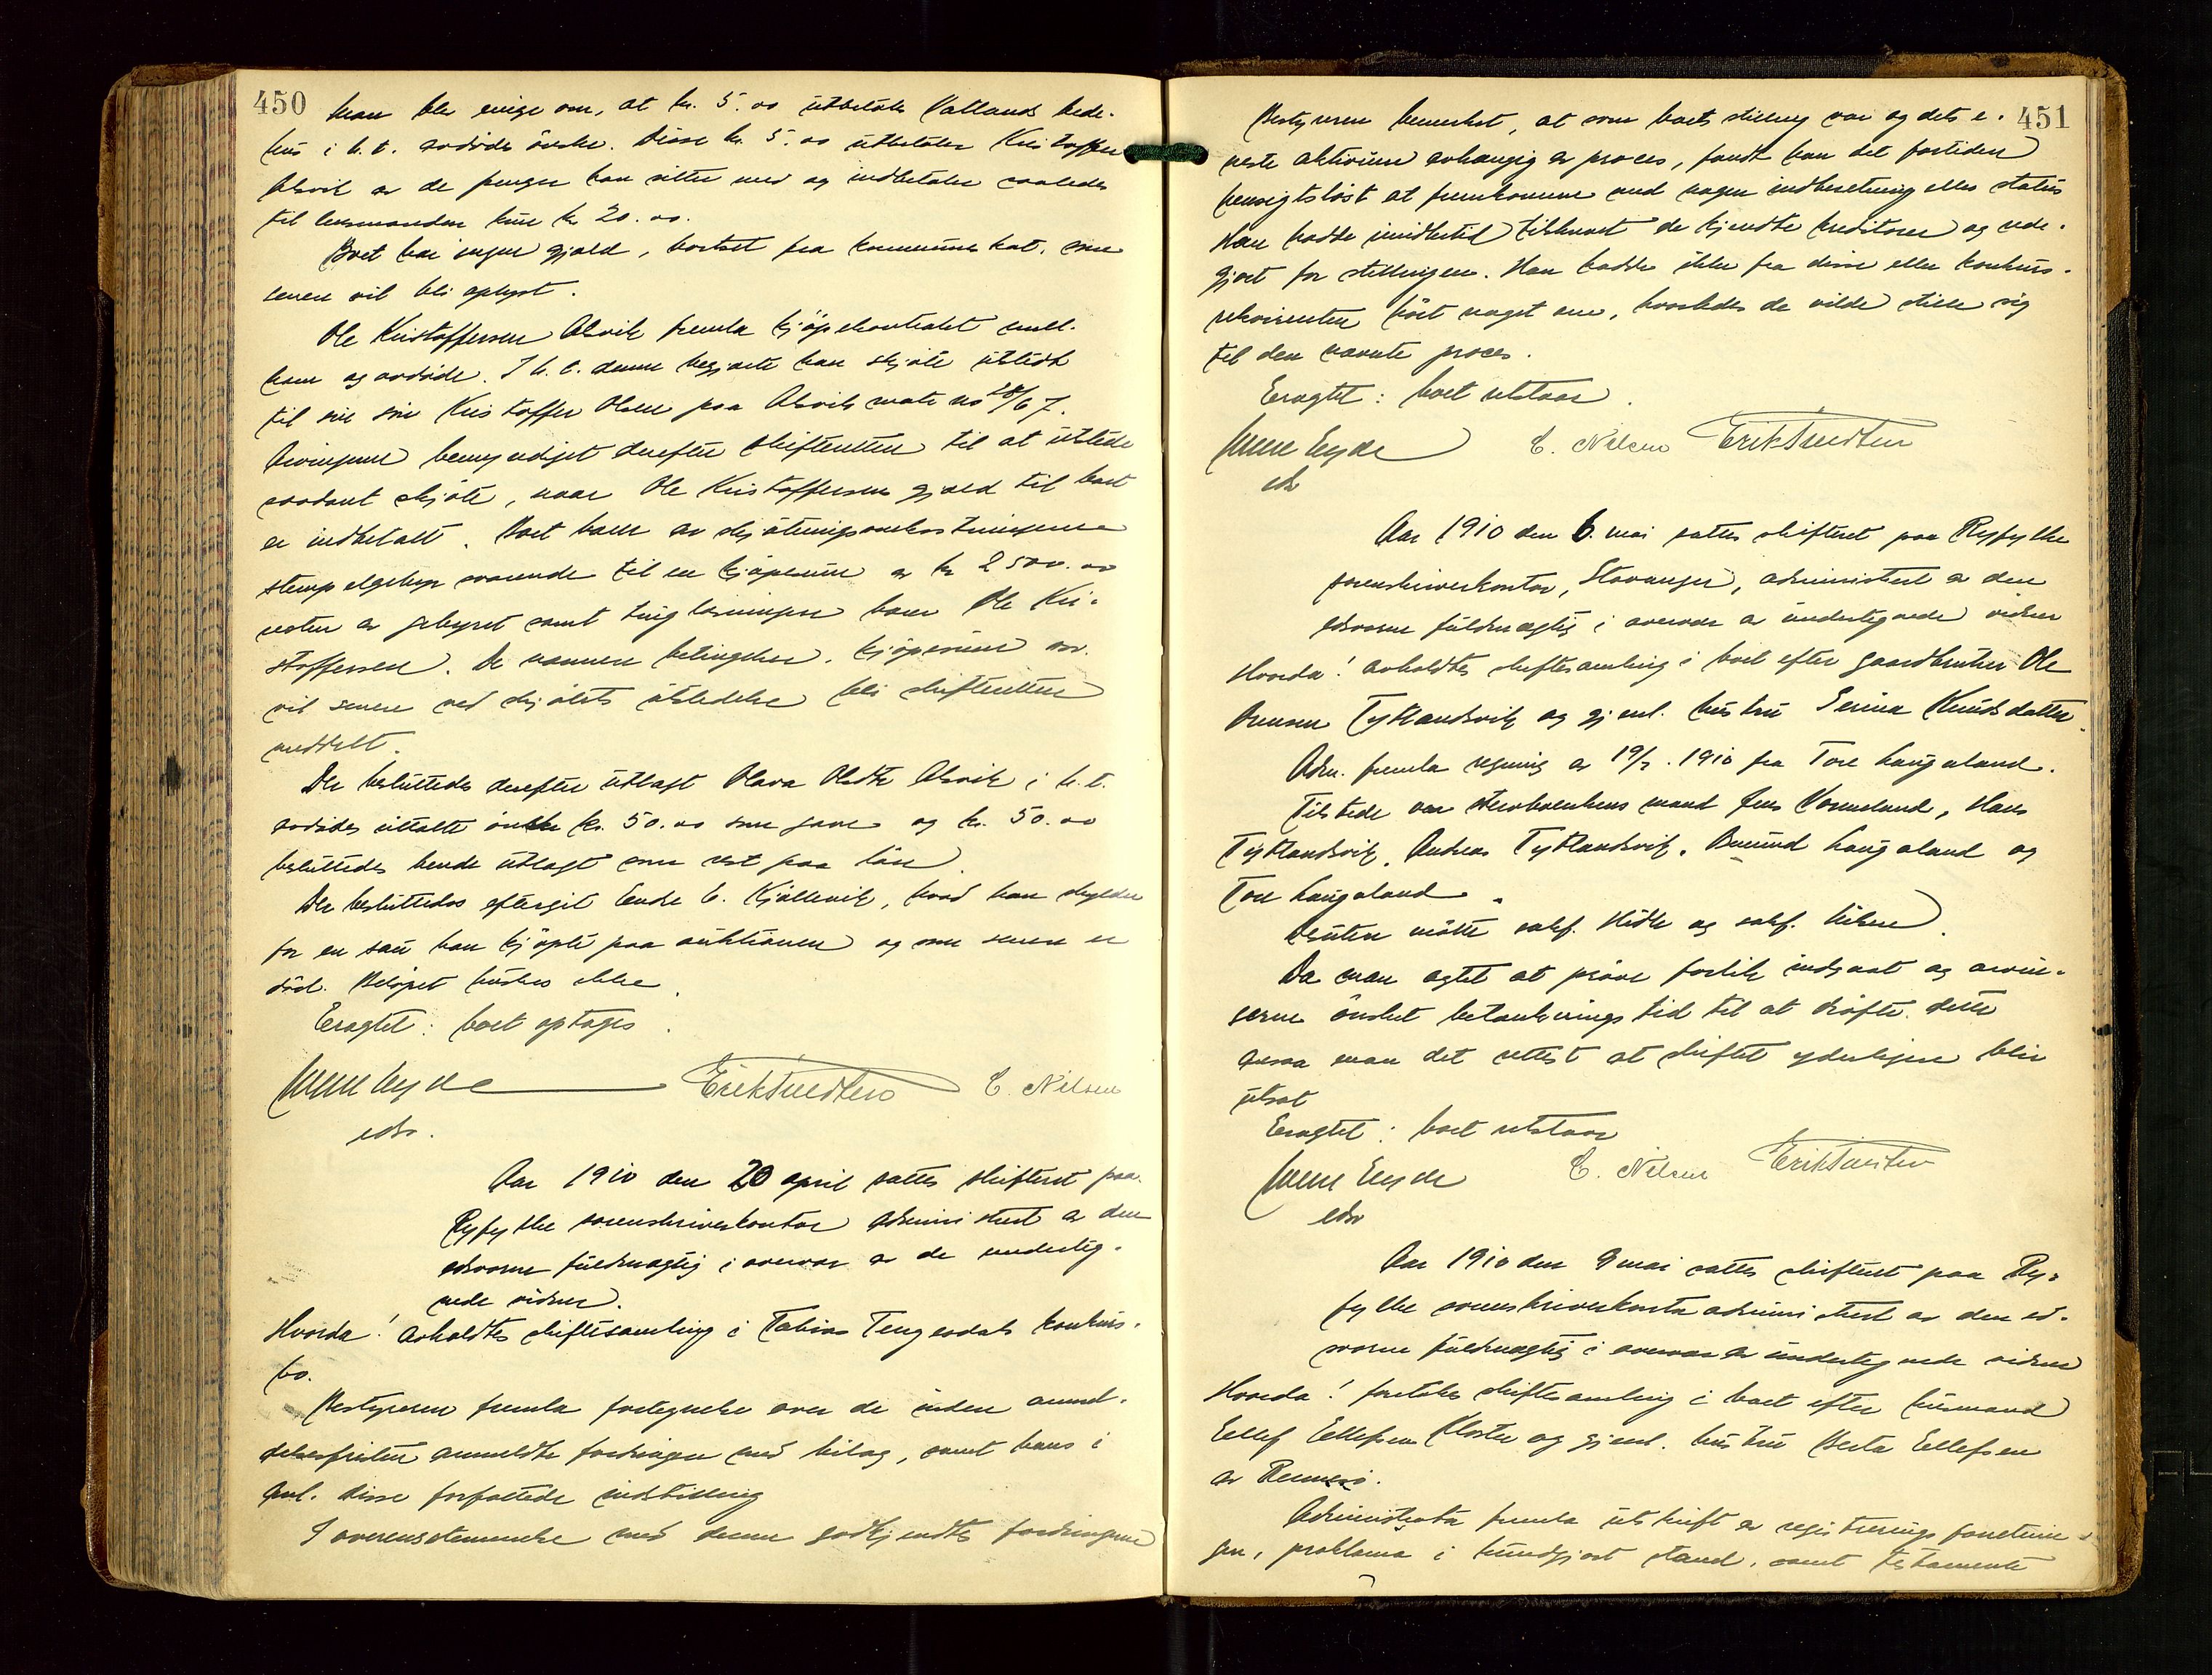 450
man ble enige om, at kr. 5.00 utbetales Vatlands bede-
hus i h.t. avdødes ønske. Disse kr. 5.00 utbetaler Kristoffer
Alsvik av de penger han sitter med og indbetaler saaledes
til lensmanden kun kr 20.00.
Boet har ingen gjæld, bortset fra kommuneskat, som
senere vil bli oplyst.
Ole Kristoffersen Alsvik fremla kjøpekontrakt mell.
ham og avdøde. I h.t. denne begjærte han skjøte utstedt
til sin søn Kristoffer Olsen paa Alsvik matr no 28/6 7.
Arvingerne bemyndiget derefter skifteretten til at utstede
saadant skjøte, naar Ole Kristoffersens gjæld til boet
er indbetalt. Boet bærer av skjøtningsomkostningerne
stempelgebyr svarende til en kjøpesum av kr 2500.00
resten av gebyret samt tinglæsningen bærer Ole Kri-
stoffersen. De nærmere betingelser, kjøpesum osv.
vil senere ved skjøtets utstedelse bli skifteretten
meddelt.
Der besluttedes derefter utlagt Olava Olsdtr Alsvik i h.t.
avdødes uttalte ønske kr. 50.00 som gave og kr. 50.00
besluttedes hende utlagt som rest paa løn.
Der besluttedes eftergit Endre C. Kjøllevik, hvad han skylder
for en sau han kjøpte paa auktionen og som senere er
død. Beløpet huskes ikke.
Eragtet: boet optages.
Erik Knedsen C. Nilsen
edsv.
Aar 1910 den 20 april sattes skifteret paa
Ryfylke sorenskriverkontor administrert av den
edsvorne fuldmægtig i overvær av de underteg-
nede vidner.
Hvorda! avholdtes skiftesamling i Tobias Tengesdals konkurs-
bo.
Bestyreren fremla fortegnelse over de inden anmel-
delsesfristen anmeldte fordringer med bilag, samt hans i
anl. disse forfattede indstilling
I overensstemmelse med denne godkjendtes fordringerne
451
Bestyreren bemerket, at som boets stilling var og dets e-
neste aktivum avhængig av proces, fandt han det fortiden
hensigtsløst at fremkomme med nogen indberetning eller status
Han hadde imidlertid tilskrevet de kjendte kreditorer og rede-
gjort for stillingen. Han hadde ikke fra disse eller konkurs-
rekvirenten hørt noget om, hvorledes de vilde stille sig
til den nævnte proces.
Eragtet: boet utstaar.
C. Nilsen Erik Knedsen
edsv
Aar 1910 den 6. mai sattes skifteret paa Ryfylke
sorenskriverkontor, Stavanger, administrert av den
edsvorne fuldmægtig i overvær av undertegnede vidner
Hvorda! avholdtes skiftesamling i boet efter gaardbruker Ole
Tytlandsvik og gjenl. hustru Serina Knudsdatter.
Adm. fremla regning av 19/2. 1910 fra Tore Laugaland.
Tilstede var stervboenkens mand Jens Vormeland, Hans
Tytlandsvik, Andreas Tytlandsvik, Amund Laugaland og
Tore Laugaland.
Desuten møtte sakf. Hidle og sakf. Nilsen.
Da man agtet at prøve forlik indgaat og arvin-
gerne ønsket betænkningstid til at drøfte dette
ansaa man det rettest at skiftet yderligere blir
utsat
Eragtet: boet utstaar
C. Nilsen Erik Knedsen
edsv
Aar 1910 den 9 mai sattes skifteret paa Ry-
fylke sorenskriverkontor administrert av den ed-
svorne fuldmægtig i overvær av undertegnede vidner
Hvorda! foretokes skiftesamling i boet efter husmand
Ellef Ellefsen Kloster og gjenl. hustru Berta Ellefsen
av Rennesø.
Administrator fremla utskrift av registreringsforretnin-
gen, proklama i kundgjort stand, samt testamente